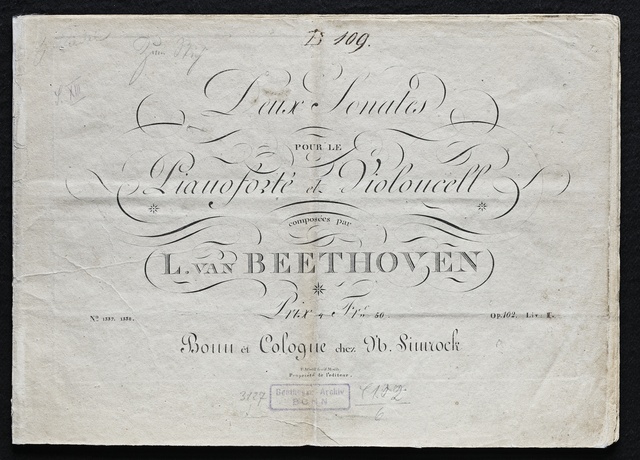 B 109.
Deux Sonates
POUR LE
Pianoforté et Violoncell
composées par
L. VAN BEETHOVEN
Prix 4 Frs. 50
Op. 102. Liv: I.
Bonn et Cologne chez N. Simrock
Propriété de l'éditeur.
3127
Beethoven-Archiv
BONN
C 102
6